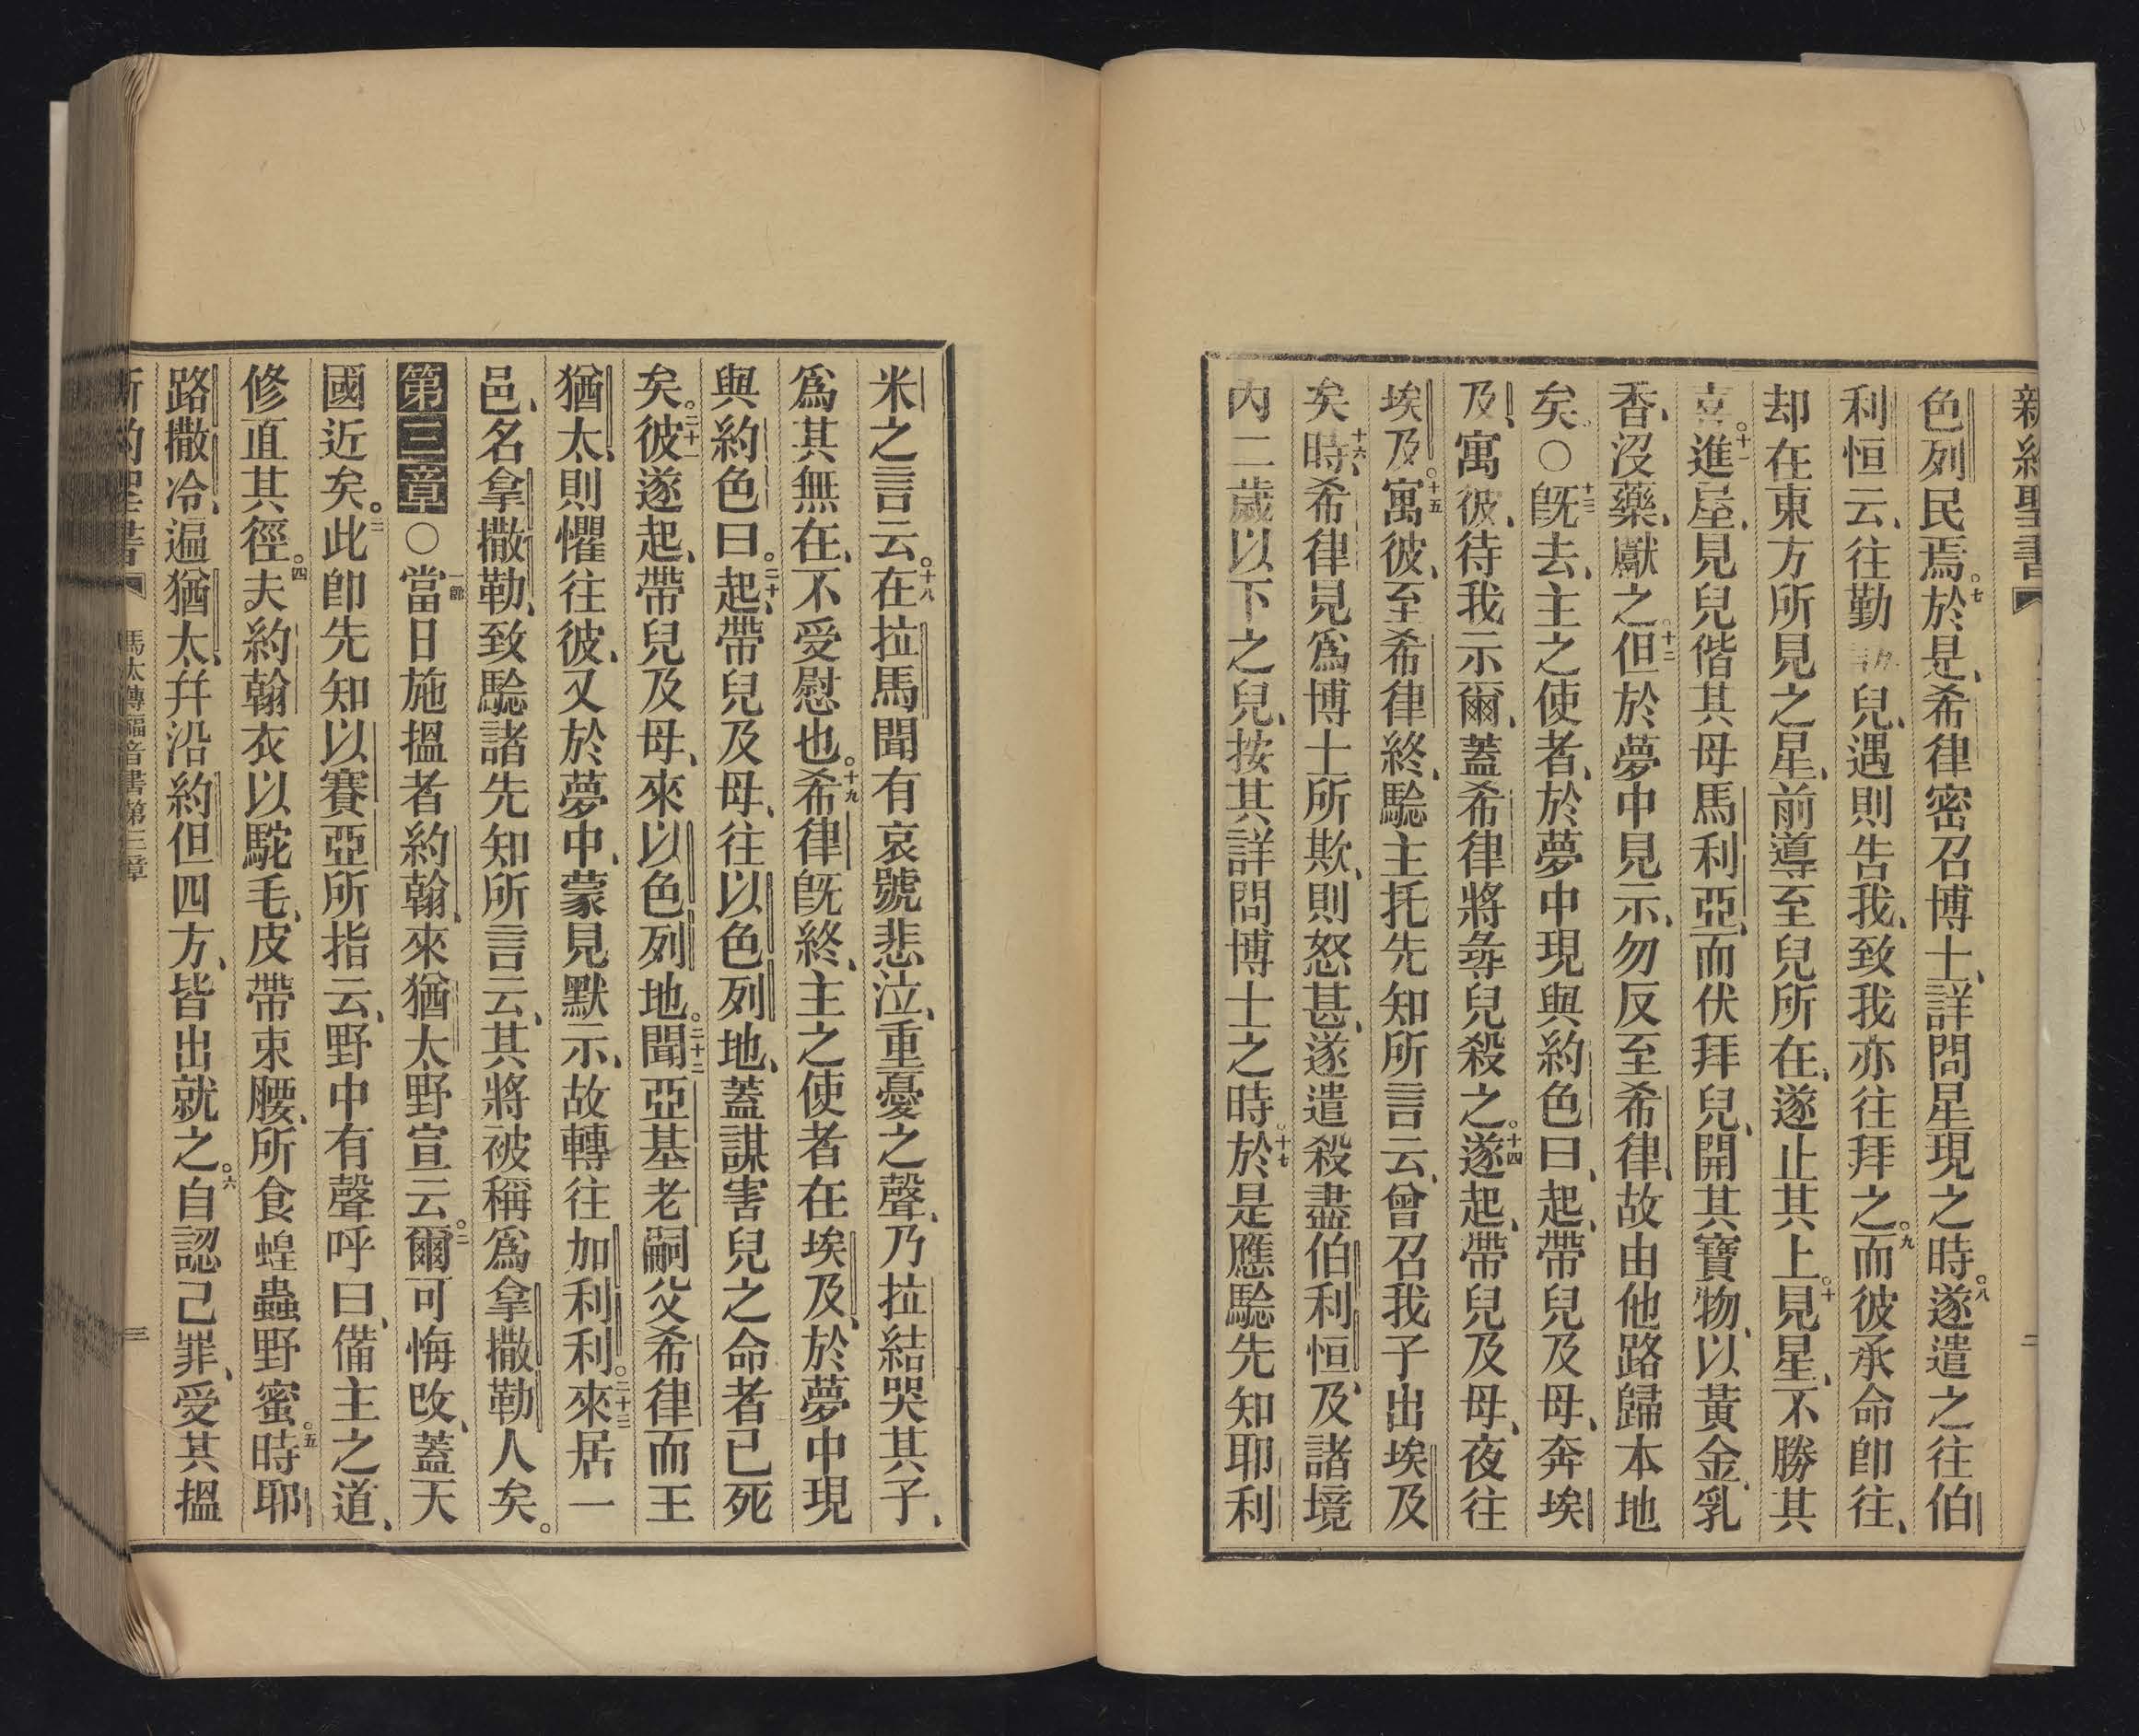 新約聖書
二
色列民焉。七於是、希律密召博士、詳問星現之時。八遂遣之往伯
利恒云、往勤 兒、遇則告我、致我亦往拜之。九而彼承命卽往、
却在東方所見之星、前導至兒所在、遂止其上。十見星、不勝其
喜。十一進屋、見兒偕其母馬利亞、而伏拜兒、開其寶物、以黃金、乳
香、沒藥、獻之。十二但於夢中見示、勿反至希律、故由他路歸本地
矣。○十三旣去、主之使者、於夢中現與約色曰、起、帶兒及母、奔埃
及、寓彼、待我示爾、蓋希律將尋兒殺之。十四遂起、帶兒及母、夜往
埃及。十五寓彼、至希律終、騐主托先知所言云、曾召我子出埃及
矣。十六時、希律見爲博士所欺、則怒甚、遂遣殺盡伯利恒、及諸境
內二歲以下之兒、按其詳問博士之時。十七於是應騐先知耶利
米之言云。十八在拉馬聞有哀號悲泣、重憂之聲、乃拉結哭其子、
爲其無在、不受慰也。十九希律旣終、主之使者在埃及、於夢中現
與約色曰。二十起、帶兒及母、往以色列地、蓋謀害兒之命者已死
矣。二十一彼遂起、帶兒及母、來以色列地。二十二聞亞基老嗣父希律而王
猶太、則懼往彼、又於夢中、蒙見默示、故轉往加利利。二十三來居一
邑、名拿撒勒、致騐諸先知所言云、其將被稱爲拿撒勒人矣。
第三章○一節當日施搵者約翰、來猶太野宣云。二爾可悔改、蓋天
國近矣。三此卽先知以賽亞所指云、野中有聲呼曰、備主之道、
修直其徑。四夫約翰衣以駝毛、皮帶束腰、所食蝗蟲野蜜。五時耶
路撒冷、遍猶太、幷沿約但四方、皆出就之。六自認己罪、受其搵
新約聖書 馬太傳福音書第三章 三